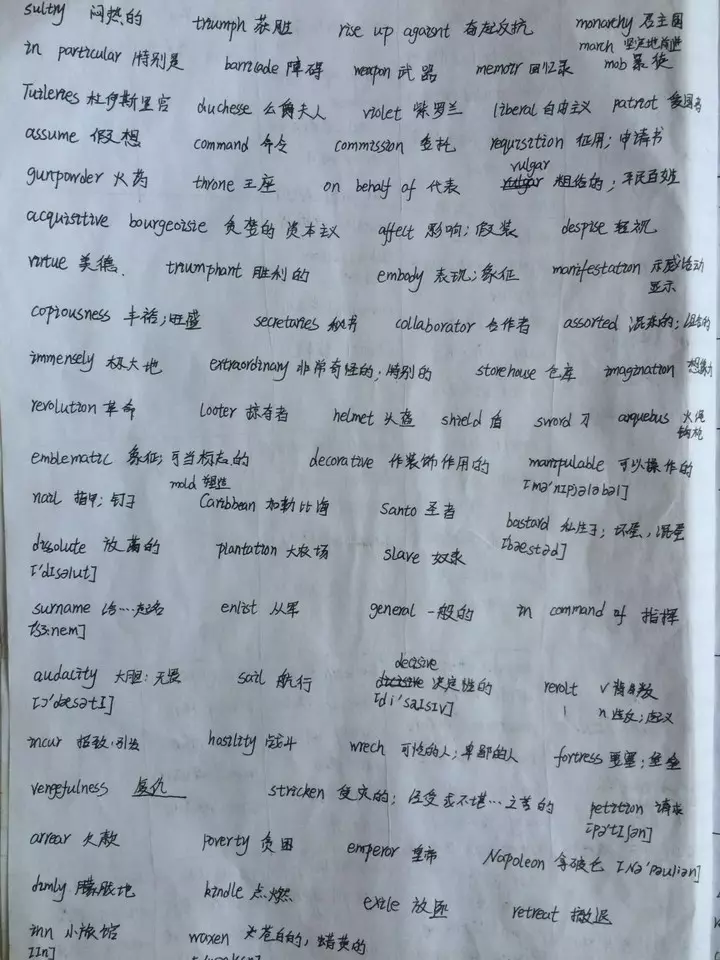 sultry 闷热的 triumph 获胜 rise up against 奋起反抗 monarthy 君主国
march 坚定地前进
in particular 特别是 barricade 障碍 weapon 武器 memoir 回忆录 mob 暴徒
Tuileries 杜伊斯里宫 duchesse 公爵夫人 violet 紫罗兰 liberal 自由主义 patriot 爱国者
assume 假想 command 命令 commission 委托 requisition 征用；申请书
vulgar
gunpowder 火药 throne 王座 on behalf of 代表 粗俗的；平民百姓
acquisitive bourgeoisie 贪婪的资本主义 affect 影响；假装 despise 轻视
virtue 美德. triumphant 胜利的 embody 表现；象征 manifestation 示威活动
显示
copiousness 丰裕；旺盛 secretaries 秘书 collaborator 合作者 assorted 混杂的；
immensely 极大地 extraordinary 非常奇怪的；特别的 storehouse 仓库 imagination 想象力
revolution 革命 looter 掠夺者 helmet 头盔 shield 盾 sword 刀 arquebus 火绳
钩枪
emblematic 象征；可当标志的 decorative 作装饰作用的 manipulable 可以操作的
mold 塑造 [mə'nɪpjələbəl]
nail 指甲；钉子 Caribbean 加勒比海 Santo 圣者 bastard 私生子；坏蛋，混蛋
dissolute 放荡的 plantation 大牧场 slave 奴隶 [bæstəd]
['dɪsəlut]
surname 给…起名 enlist 从军 general 一般的 in command of 指挥
[sɜ:nem]
decisive
audacity 大胆；无畏 sail 航行 决定性的 revolt v 背叛
[ɔ'dæsətɪ] [di'saɪsɪv] n 造反；起义
incur 招致，引发 hosility 战斗 wrech 可怜的人；卑鄙的人 fortress 要塞；堡垒
vengefulness 复仇 stricken 受灾的；经受或不堪…之苦的 petition 请求
[pə'tɪʃən]
arrear 欠款 poverty 贫困 emperor 皇帝 Napoleon 拿破仑 [nə'pəuliən]
dimly 朦胧地 kindle 点燃 exile 放逐 retreat 撤退
inn 小旅馆 waxen 苍白的，蜡黄的
[ɪn]